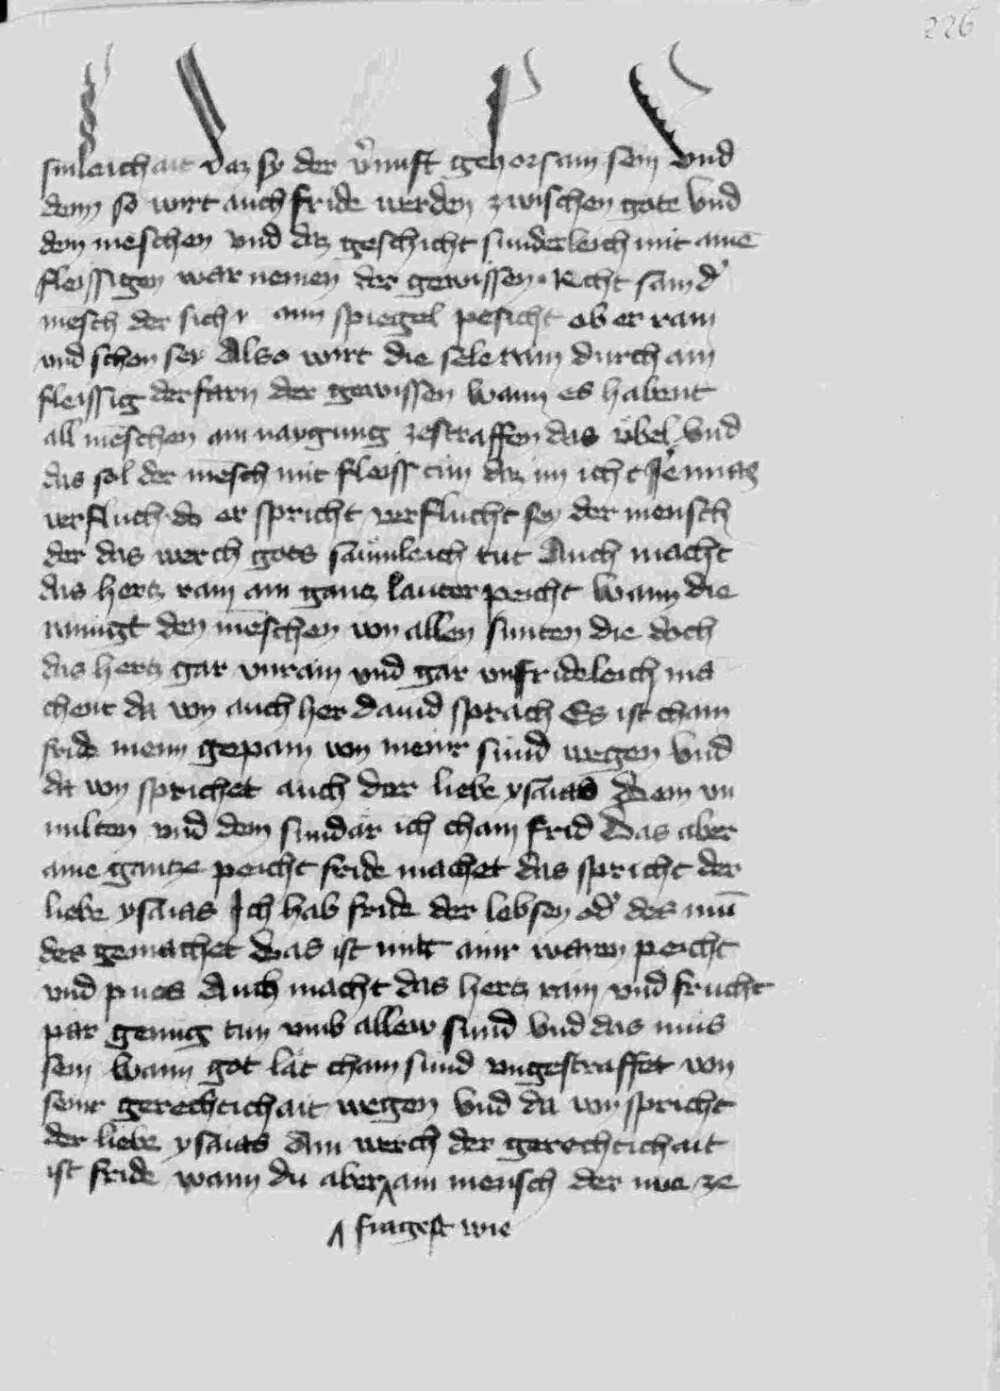 226
sinleichait daz sy der v̊nunft gehorsam sein vnd
dem so wirt auch fride werden zwischen gote vnd
dem meschen vnd daz geschicht sunderleich mit aine
fleissigen war nemen der gewissen Recht sam d'
mesch der sich aim spiegel pesicht ob er rain
vnd schon sey Also wirt die sele rain durch ain
fleissig derfarn der gewissen Wann es habent
all meschen ain naygung zestraffen das ubel Vnd
das sol der mesch mit fleiss tun daz im icht Jemias
verfluch do er spricht verflucht sey der mensch
der das werch gots saumleich tut Auch macht
das hertz rain ain gantz lauter peicht Wann die
rainigt den meschen von allen sunten die doch
das hertz gar vnrain vnd gar vnfrideleich ma
chent da von auch her dauid sprach Es ist chain
fride meim gepain von meinr sund wegen Vnd
da von sprichet auch der liebe ysaias Dem vn
milten vnd dem sundar ich chain frid Das aber
aine gantze peicht fride machet das spricht der
liebe ysaias Ich hab fride der lebsen od' des mu
des gemachet Das ist mit ainr waren peicht
vnd pues Auch macht das hertz rain vnd frucht
pär genug tun vmb allew sund Vnd das mus
sein Wann got lät chain sund vngestraffet von
seinr gerechtichait wegen Vnd da von spricht
der liebe ysaias Ain werch der gerechtichait
ist fride wann du aber ^ ain mensch der nue ze
^ fragest wie